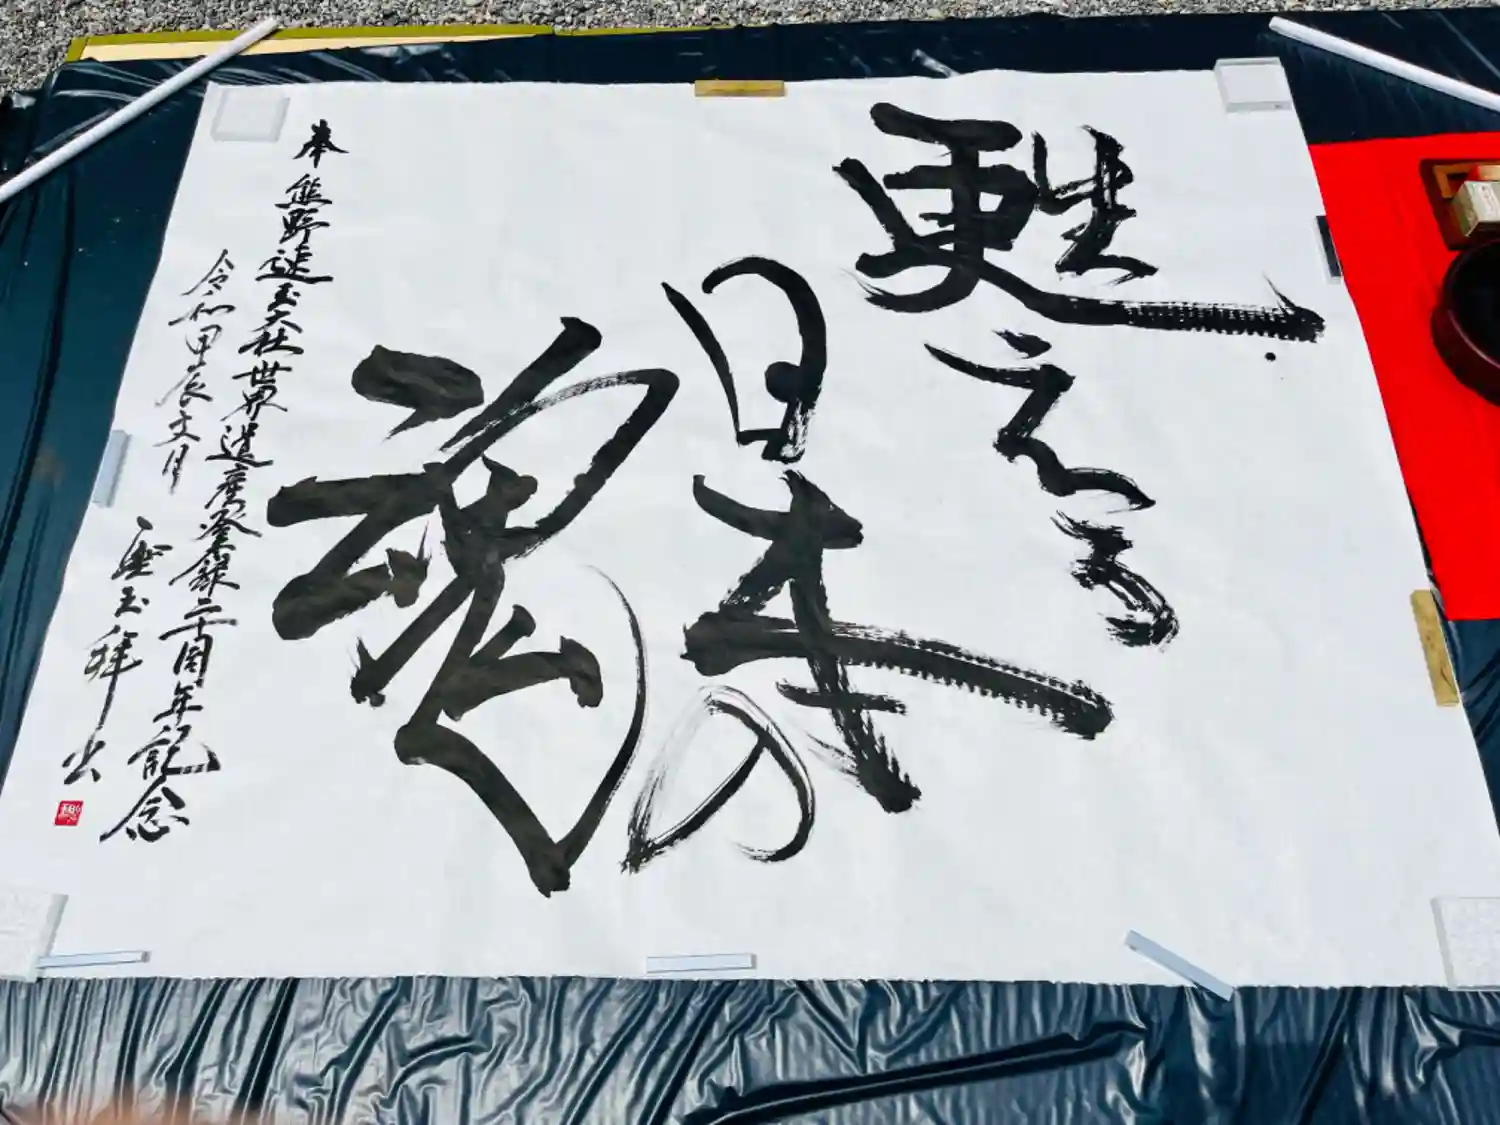 甦える
日本の
魂
奉 熊野速玉大社世界遺産登録二十周年記念
令和甲辰文月
玉拜书